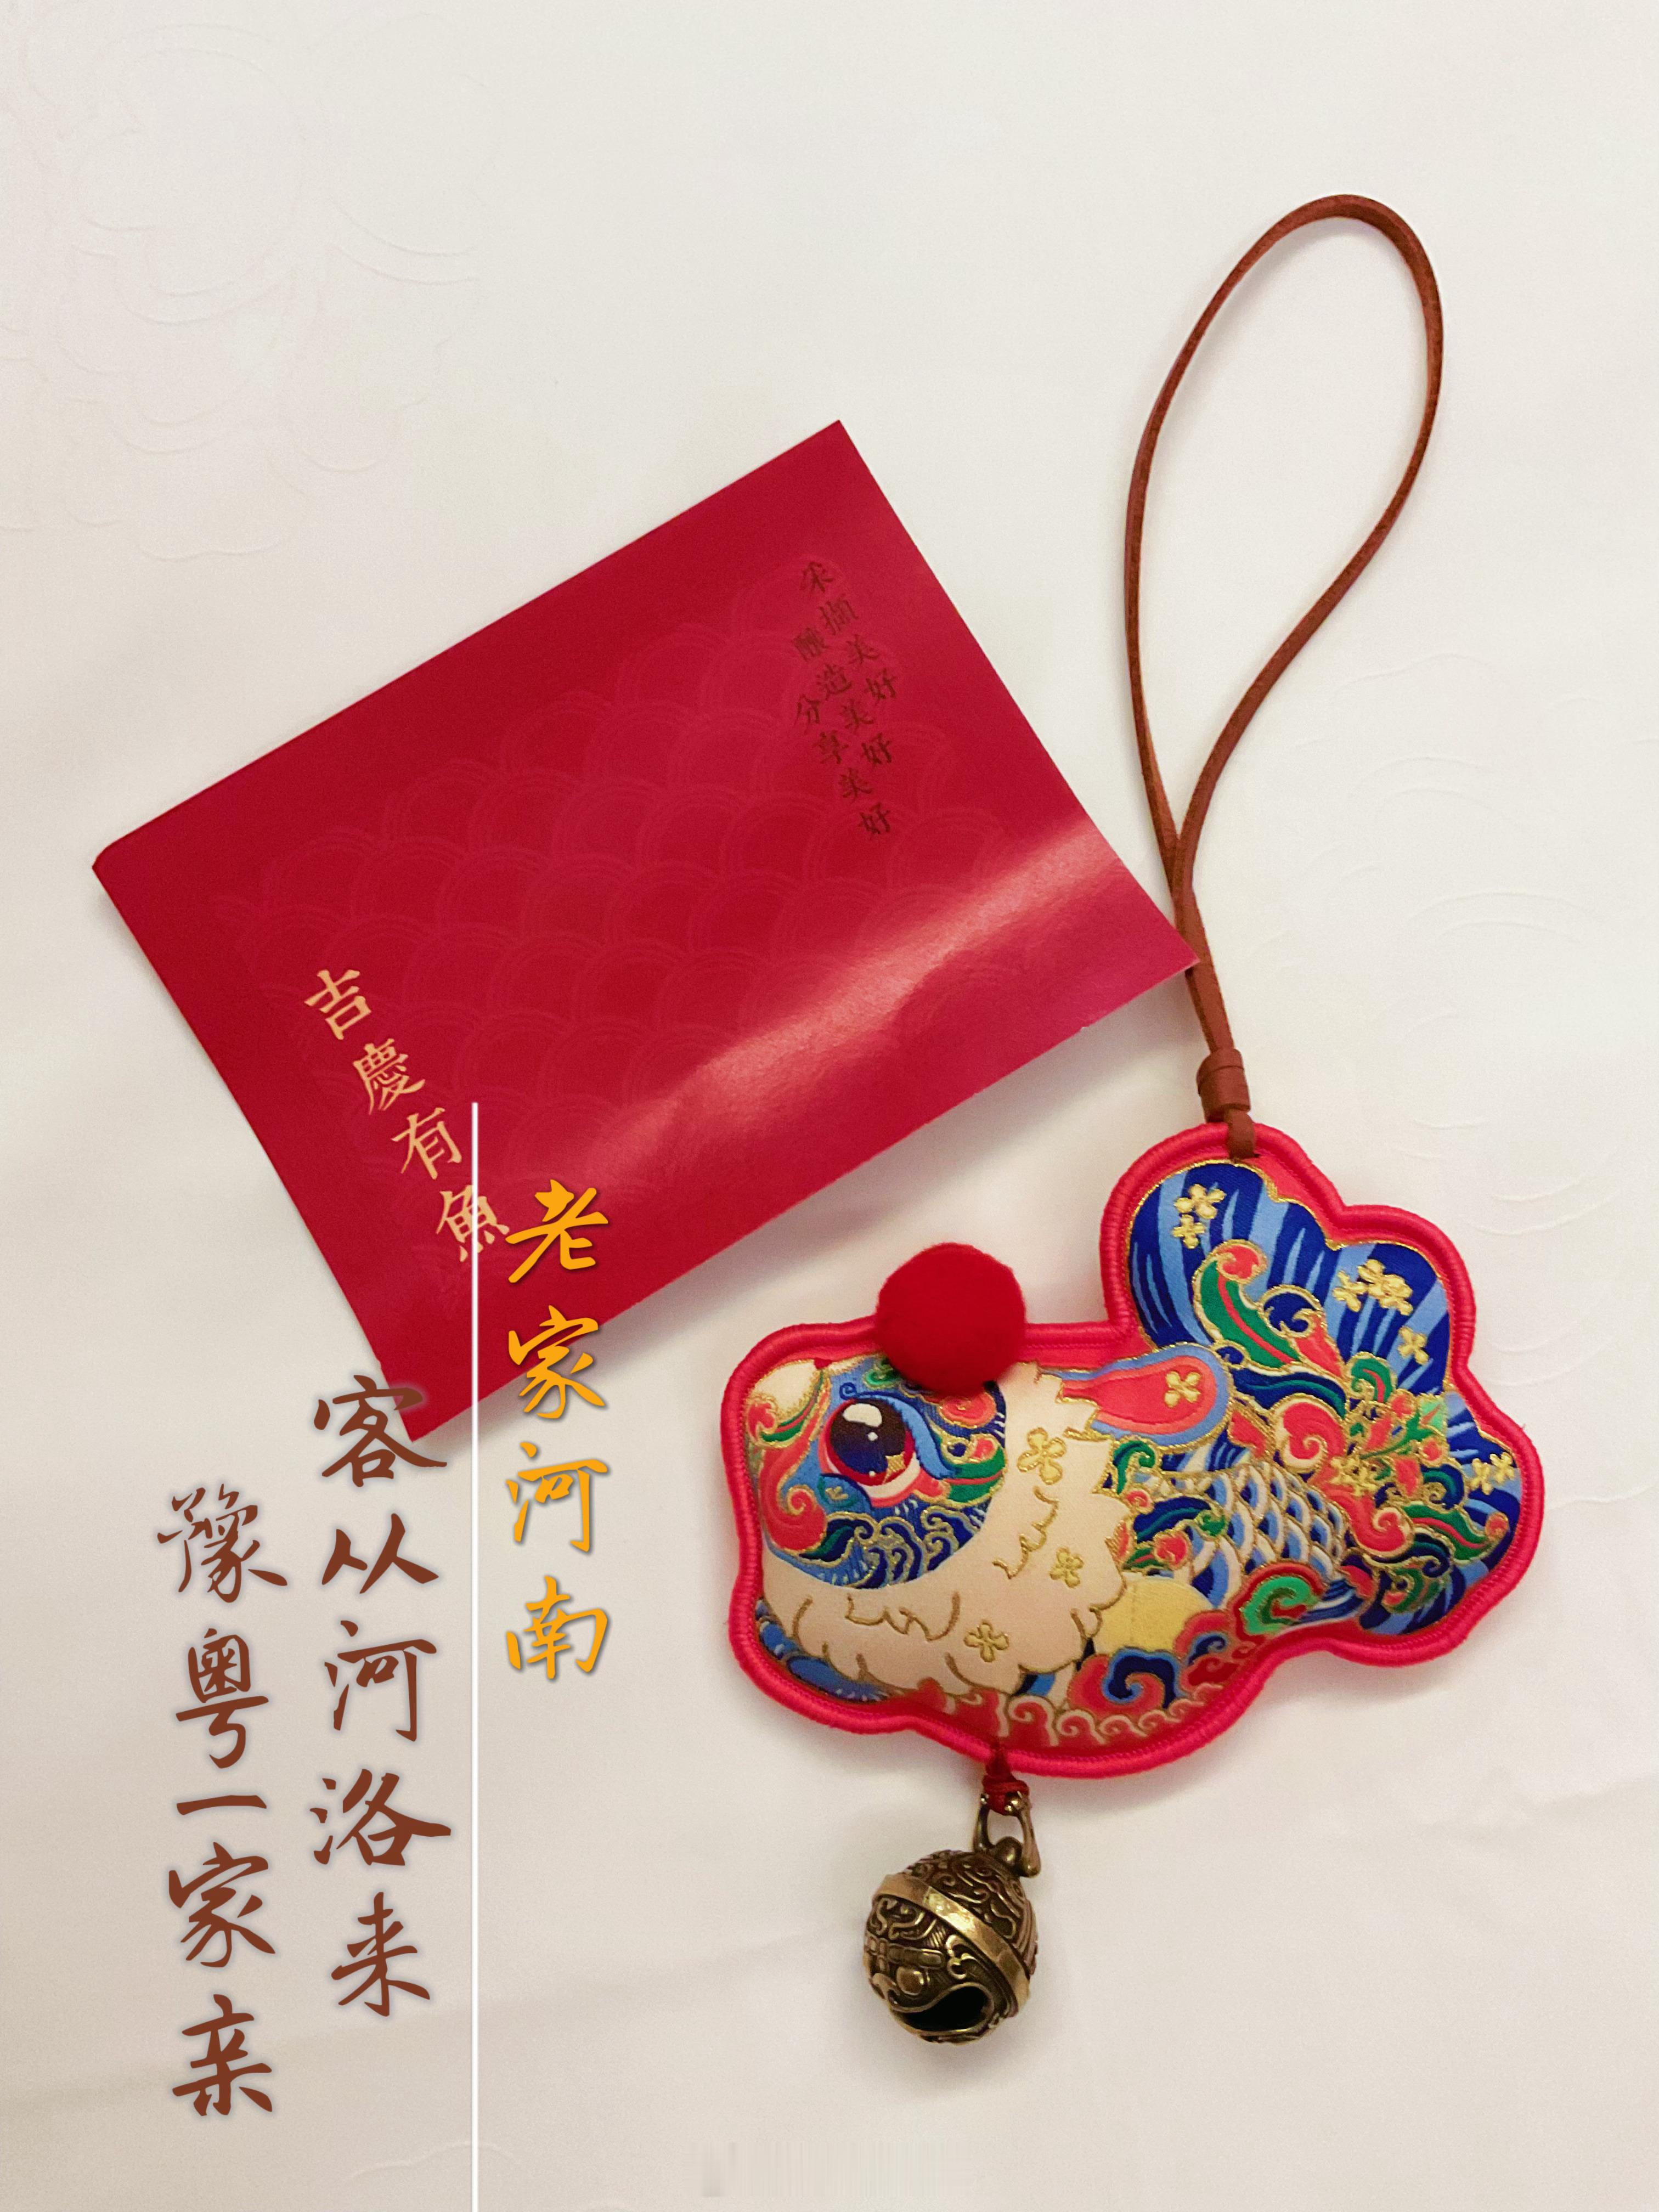 采撷美好
酿造美好
分享美好
吉慶有魚
老家河南
客从河洛来
豫粤一家亲